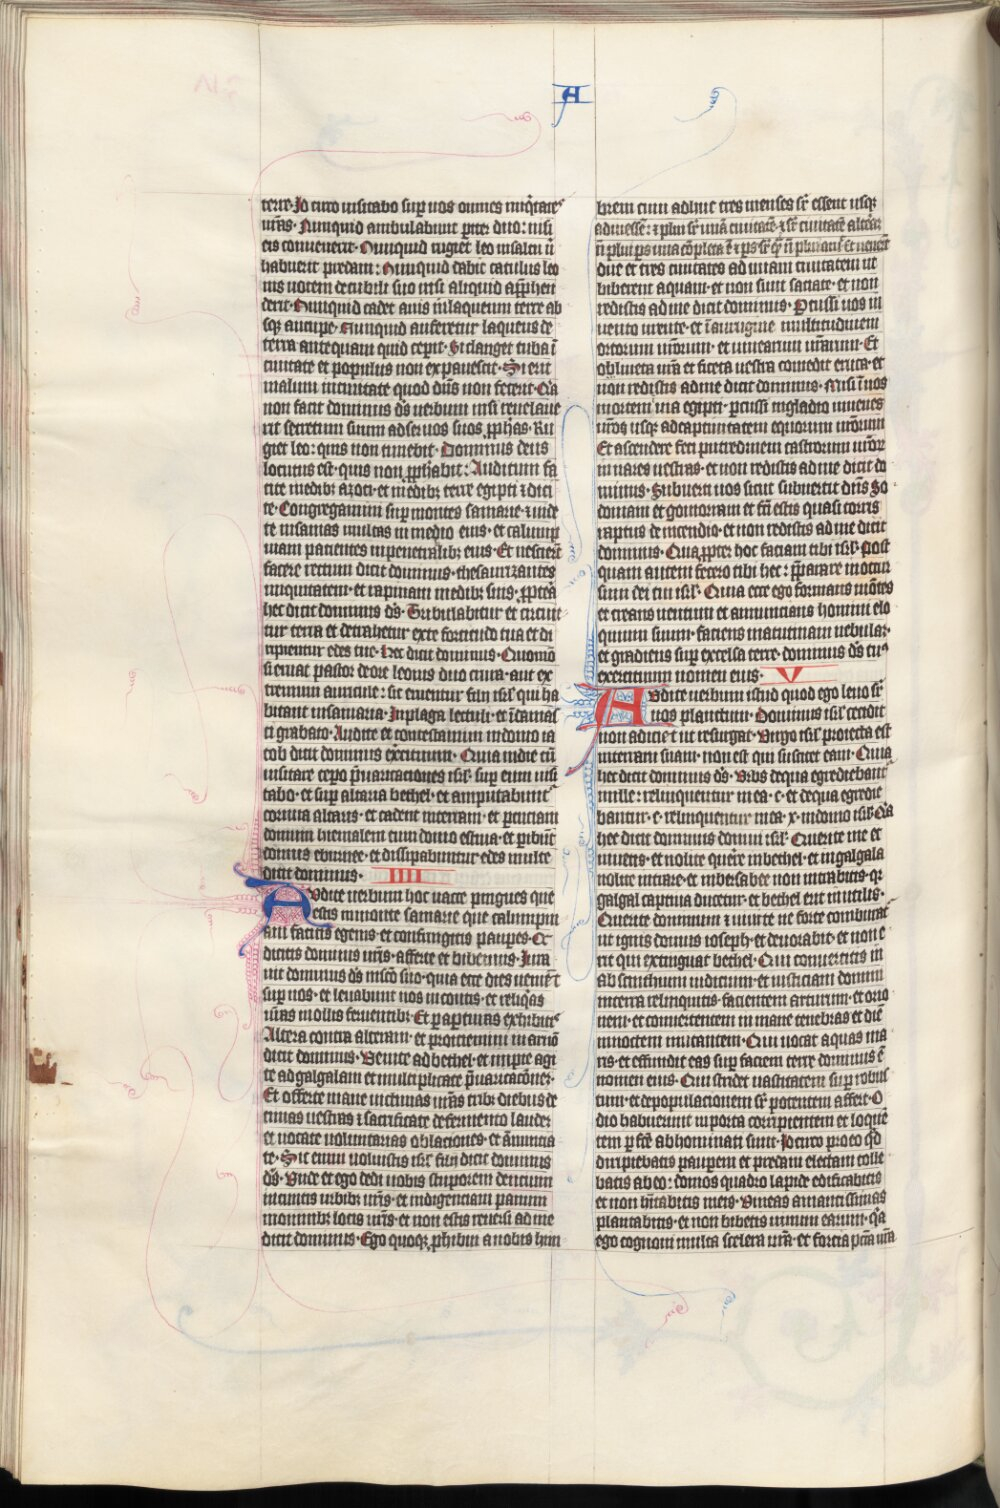 A
terre. Jdcirco uisitabo sup uos omnes iniq̅tates
ur̅as. Nunquid ambulabunt pit̅er duo: nisi
eis conuenerit. Nunquid rugiet leo insaltu n̅
habuerit predam: Nunquid dabit catulus leo
nis uocem decubili suo nisi aliquid app̅hen
derit. Nunquid cadet auis inlaqueum terre ab
sqꝫ aucupe. Nunquid auferetur laqueus de
terra antequam quid ceperit. Si clanget tuba i̅
ciuitate et populus non expauescit. Si erit
malum inciuitate quod dn̅s non fecerit. Q̅a
non facit dominus ds̅ uerbum nisi reuelaue
rit secretum suum adseruos suos p̅phas. Ru
giet leo: quis non timebit. Dominus deus
locutus est. quis non p̅phabit: Auditum fa
cite inedibꝫ azoti. et inedibꝫ terre egipti ⁊ dici
te. Congregamini sup montes samarie. ⁊ uide
te insanias multas in medio eius. et calump
niam pacientes inpenetralibꝫ eius. Et nescier̅t
facere rectum dicit dominus. thesaurizantes
iniquitatem. et rapinam inedibꝫ suis. p̅pt̅ea
hec dicit dominus ds̅. Tribulabitur et circui
tur terra et detrahetur exte fortitudo tua et di
ripientur edes tue. Hec dicit dominus. Quomo̅
si eruat pastor deore leonis duo crura. aut ex
tremum auricule: sic eruentur filii isrl̅ qui ha
bitant insamaria. Jnplaga lectuli. et i̅damas
ci grabato. Audite et contestamini indomo ia
cob dicit dominus exercituum. Quia indie cu̅
uisitare cepo p̅uaricaciones isrl̅. sup eum uisi
tabo. et sup altaria bethel. et amputabunt᷑
cornua altaris. et cadent interram. et percuciam
domum hiemalem cum domo estiua. et pibu̅t
domus eburnee. et dissipabuntur edes multe
dicit dominus. IIII
Audite uerbum hoc uacce pingues que
estis inmonte samarie que calumpni
am facitis egenis. et confringitis paupes. Q̅
dicitis dominis ur̅is. afferte et bibemus. Jura
uit dominus ds̅ insc̅o suo. quia ecce dies uenie̅t
sup uos. et leuabunt uos incontis. et reliq̅as
ur̅as inollis feruentibꝫ. Et paperturas exibitis
Altera contra alteram. et proiciemini in armo̅
dicit dominus. Venite adbethel. et impie agi
te adgalgalam et multiplicate p̅uaricac̅ones.
Et offerte mane uictimas ur̅as tribꝫ diebus de
cimas uestras ⁊ sacrificate defermento laudes
et uocate uoluntarias oblaciones. et an̅uncia
te. Sic enim uoluistis isrl̅ filii dicit dominus
ds̅. Vnde et ego dedi uobis stuporem dencium
incunctis urbibꝫ ur̅is. et indigenciam panum
inomnibꝫ locis ur̅is. et non estis reuersi ad me
dicit dominus. Ego quoqꝫ phibui a uobis him
brem cum adhuc tres menses sr̅ essent usqꝫ
admessē: ⁊ plui sr̅ una̅ ciuitatē. ⁊ sr̅ ciuitatē alterā
n̅ plui. ps una co̅pluta ē. ⁊ ps sr̅ q̅ n̅ plui aruit. Et uener̅t
due et tres ciuitates ad unam ciuitatem ut
biberent aquam. et non sunt saciate. et non
redistis ad me dicit dominus. Percussi uos in
uento urente. et i̅aurugine multitudinem
ortorum ur̅orum. et uinearum ur̅arum. Et
oliueta ur̅a et ficeta uestra comedit eruca. et
non redistis adme dicit dominus. Misi i̅uos
mortem inuia egipti. p̅cussi ingladio iuuenes
ur̅os usqꝫ adcaptiuitatem equorum ur̅orum
Et ascendere feci putredinem castrorum ur̅oꝝ
in nares uestras. et non redistis adme dicit do
minus. Subuerti uos sicut subuertit dn̅s So
domam et gomorram et fc̅i estis quasi torris
raptus de incendio. et non redistis ad me dicit
dominus. Qua p̅pter hoc faciam tibi isrl̅. Post
quam autem fecero tibi hec: p̅parare inoccur
sum dei tui isrl̅. Quia ecce ego formans mo̅tes
et creans uentum et annuncians homini elo
quium suum. faciens matutinam nebulam.
et gradiens sup excelsa terre. dominus ds̅ tu᷒
exercituum nomen eius. V
Audite uerbum istud quod ego leuo sr̅
uos planctum. Domus isrl̅ cecidit
non adiciet ut resurgat. Virgo isrl̅ proiecta est
interram suam. non est qui suscitet eam. Quia
hec dicit dominus ds̅. Vrbs dequa egrediebant᷑
mille: relinquentur inea. c. et dequa egredie
bantur. c. relinquentur inea. x. indomo isrl̅. Q̅a
hec dicit dominus domui isrl̅. Querite me et
uiuetis. et nolite que̅re inbethel. et in galgala
nolite intrare. et inbersabee non intrabitis. qꝛ
galgal captiua ducetur. et bethel erit inutilis.
Querite dominum ⁊ uiuite ne forte comburat᷑
ut ignis domus ioseph. et deuorabit. et non e
rit qui extinguat bethel. Qui conuertitis in
absinthium iudicium. et iusticiam domini
interra relinquitis. facientem arturum. et orio
nem. et conuertentem in mane tenebras et die̅
innoctem mutantem. Qui uocat aquas ma
ris. et effundit eas sup faciem terre dominus ē
nomen eius. Qui stridet uastitatem sup robus
tum. et depopulacionem sr̅ potentem affert. O
dio habuerunt inporta corripientem et loque̅
tem p fc̅e abhominati sunt. Jdcirco proeo qd̅
diripiebatis pauperem et predam electam tolle
batis abeo: domos quadro lapide edificabitis
et non hi̅tabitis ineis. Vineas amantissimas
plantabitis. et non bibetis uinum earum. q̅a
ego cognoui multa scelera ur̅a. et forcia pcc̅a ur̅a